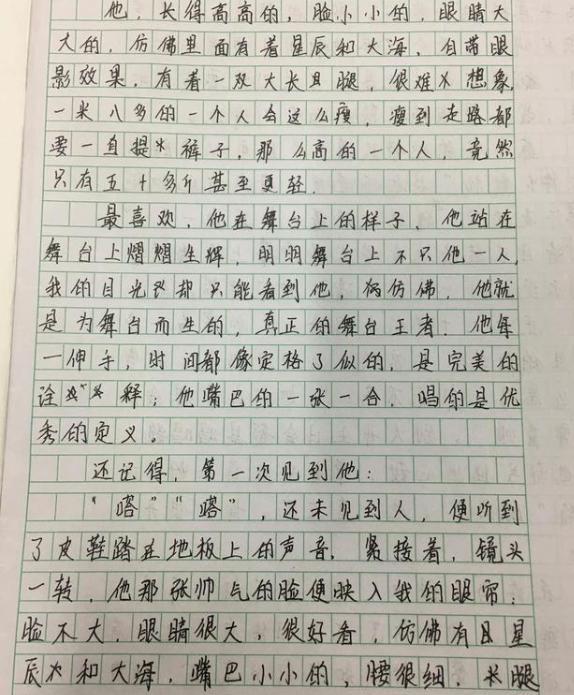 他，长得高高的，脸小小的，眼睛大
大的，仿佛里面有着星辰和大海，自带眼
影效果，有着一双大长腿，很难想象，
一米八多的一个人会这么瘦，瘦到走路都
要一直提裤子，那么高的一个人，竟然
只有五十多斤甚至更轻．
最喜欢，他在舞台上的样子，他站在
舞台上熠熠生辉，明明舞台上不只他一人，
我的目光却只能看到他，仿佛，他就
是为舞台而生的，真正的舞台王者．他每
一伸手，时间都像定格了似的，是完美的
诠释；他嘴巴的一张一合，唱的是优
秀的定义。
还记得，第一次见到他：
“嗒”“嗒”，还未见到人，便听到
了皮鞋踏在地板上的声音．紧接着，镜头
一转，他那张帅气的脸便映入我的眼帘：
脸不大，眼睛很大，很好看，仿佛有星
辰和大海，嘴巴小小的，腰很细，长腿